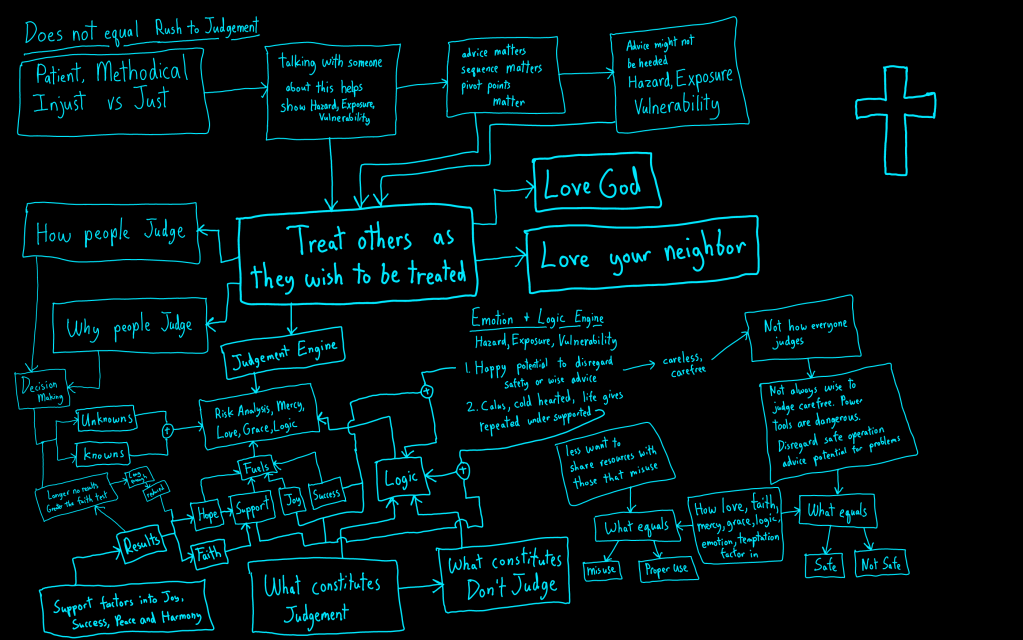 Does not equal Rush to Judgement
Patient, Methodical
Injust vs Just
talking with someone
about this helps
show Hazard, Exposure,
Vulnerability
advice matters
sequence matters
pivot points
matter
Advice might not
be heeded
Hazard, Exposure
Vulnerability
Love God
Treat others as
they wish to be treated
Love your neighbor
How people Judge
Why people Judge
Judgement Engine
Emotion + Logic Engine
Hazard, Exposure, Vulnerability
1. Happy potential to disregard
safety or wise advice
careless,
carefree
2. Calm, cold hearted, life gives
repeated under supported
Not how everyone
judges
Not always wise to
judge carefree. Power
tools are dangerous.
Disregard safe operation
advice potential for problems
Decision
Making
Unknowns
Knowns
+
Risk Analysis, Mercy,
Love, Grace, Logic
+
Fuels
Logic
+
less want to
share resources with
those that misuse
Longer no results
Greater the faith test
Hope
Support
Joy
Success
Results
Faith
What equals
How love, faith,
mercy, grace, logic,
emotion, temptation
factor in
What equals
misuse
Proper Use
Safe
Not Safe
Support factors into Joy,
Success, Peace and Harmony
What constitutes
Judgement
What constitutes
Don't Judge